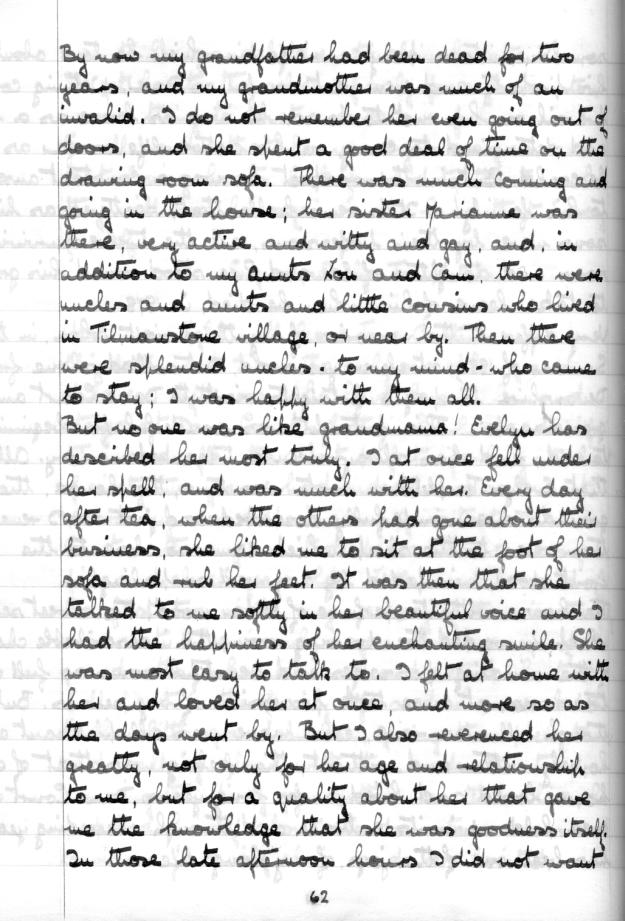 By now my grandfather had been dead for two
years, and my grandmother was much of an
invalid. I do not remember her even going out of
doors, and she spent a good deal of time on the
drawing room sofa. There was much coming and
going in the house; her sister Marianne was
there, very active and witty and gay, and, in
addition to my Aunts Lou and Cam, there were
uncles and aunts and little cousins who lived
in Tilmanstone village, or near by. Then there
were splendid uncles - to my mind - who came
to stay; I was happy with them all.
But no one was like grandmama! Evelyn has
described her most truly. I at once fell under
her spell, and was much with her. Every day
after tea, when the others had gone about their
business, she liked me to sit at the foot of her
sofa and rub her feet. It was then that she
talked to me softly in her beautiful voice and I
had the happiness of her enchanting smile. She
was most easy to talk to. I felt at home with
her and loved her at once, and more so as
the days went by. But I also reverenced her
greatly, not only for her age and relationship
to me, but for a quality about her that gave
me the knowledge that she was goodness itself.
In those late afternoon hours I did not want
62